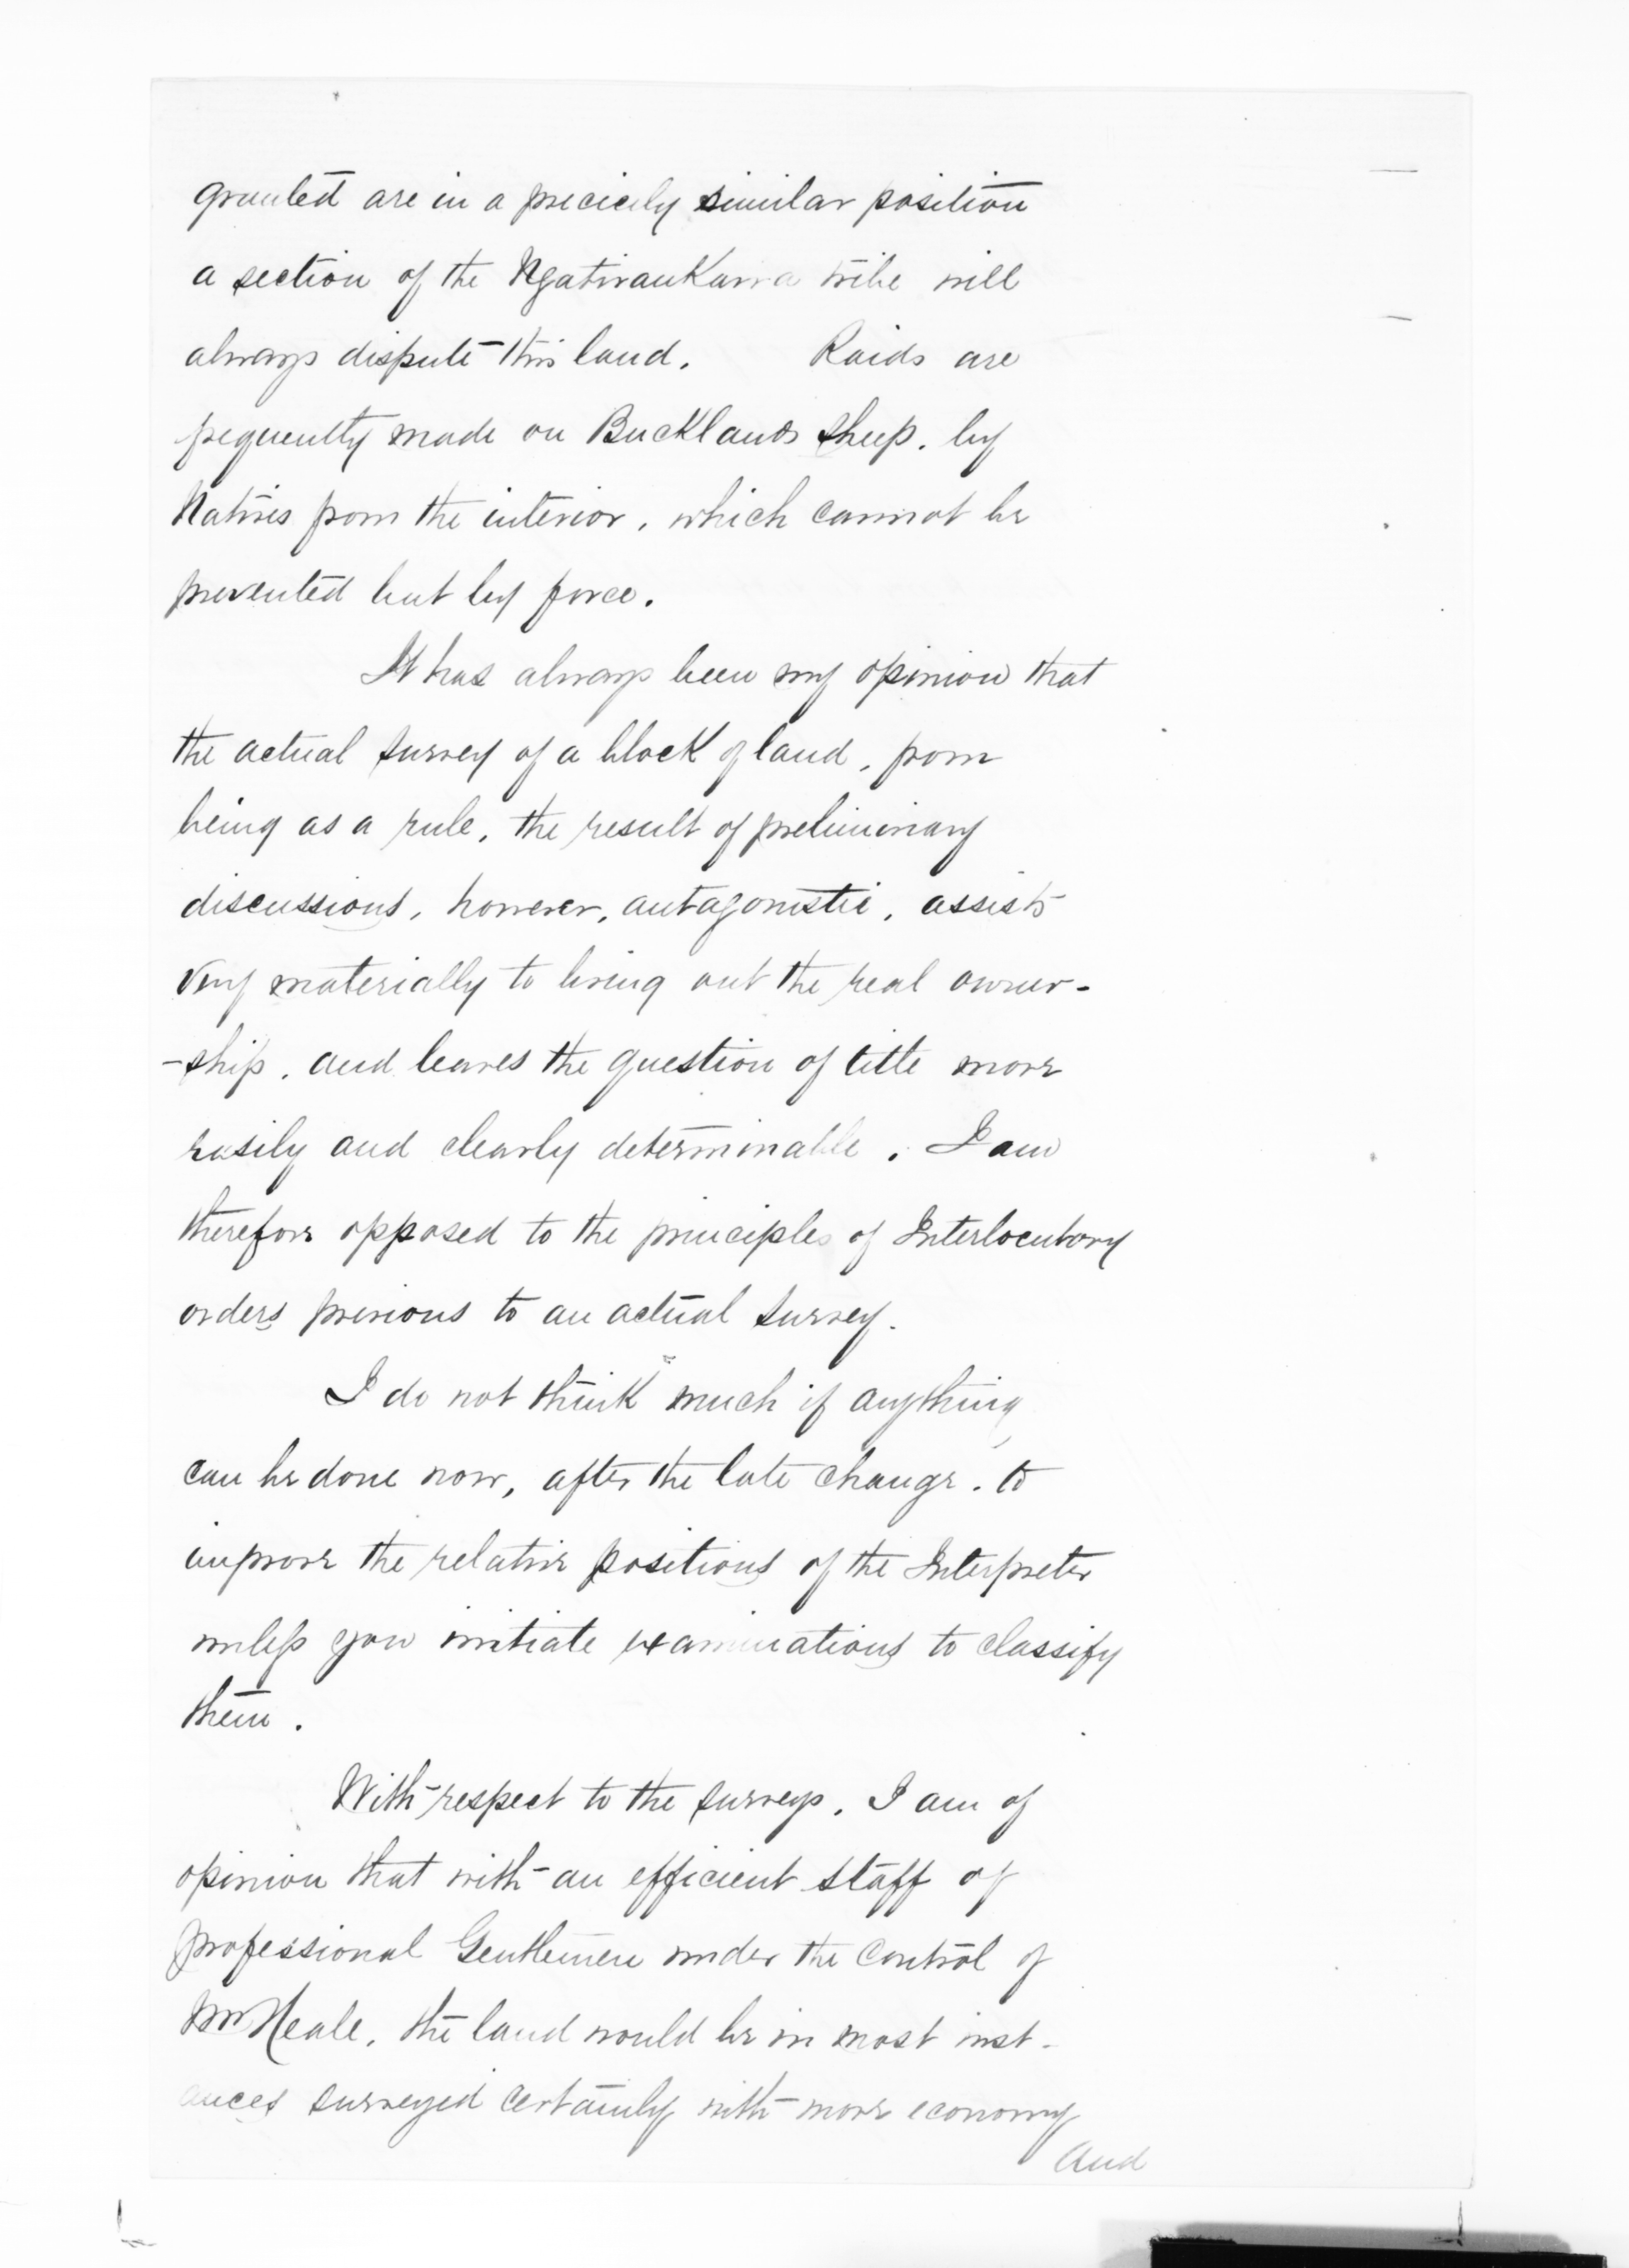 granted are in a precicely similar position
a section of the Ngatiraukawa tribe will
always dispute this land. Raids are
frequently made on Bucklands sheep. by
Natives from the interior, which cannot be
prevented but by force.
It has always been my opinion that
the actual survey of a block of land, from
being as a rule, the result of preliminary
discussions, however, antagonistic, assists
very materially to bring out the real owner-
-ship, and leaves the question of title more
easily and clearly determinable. I am
therefore opposed to the principles of Interlocutory
orders previous to an actual survey.
I do not think much if anything
can be done now, after the late change. to
improve the relative positions of the Interpreter
unless you initiate examinations to classify
them.
With respect to the surveys, I am of
opinion that with an efficient staff of
professional Gentlemen under the control of
Mr Heale, the land would be in most inst-
ances surveyed certainly with more economy
and